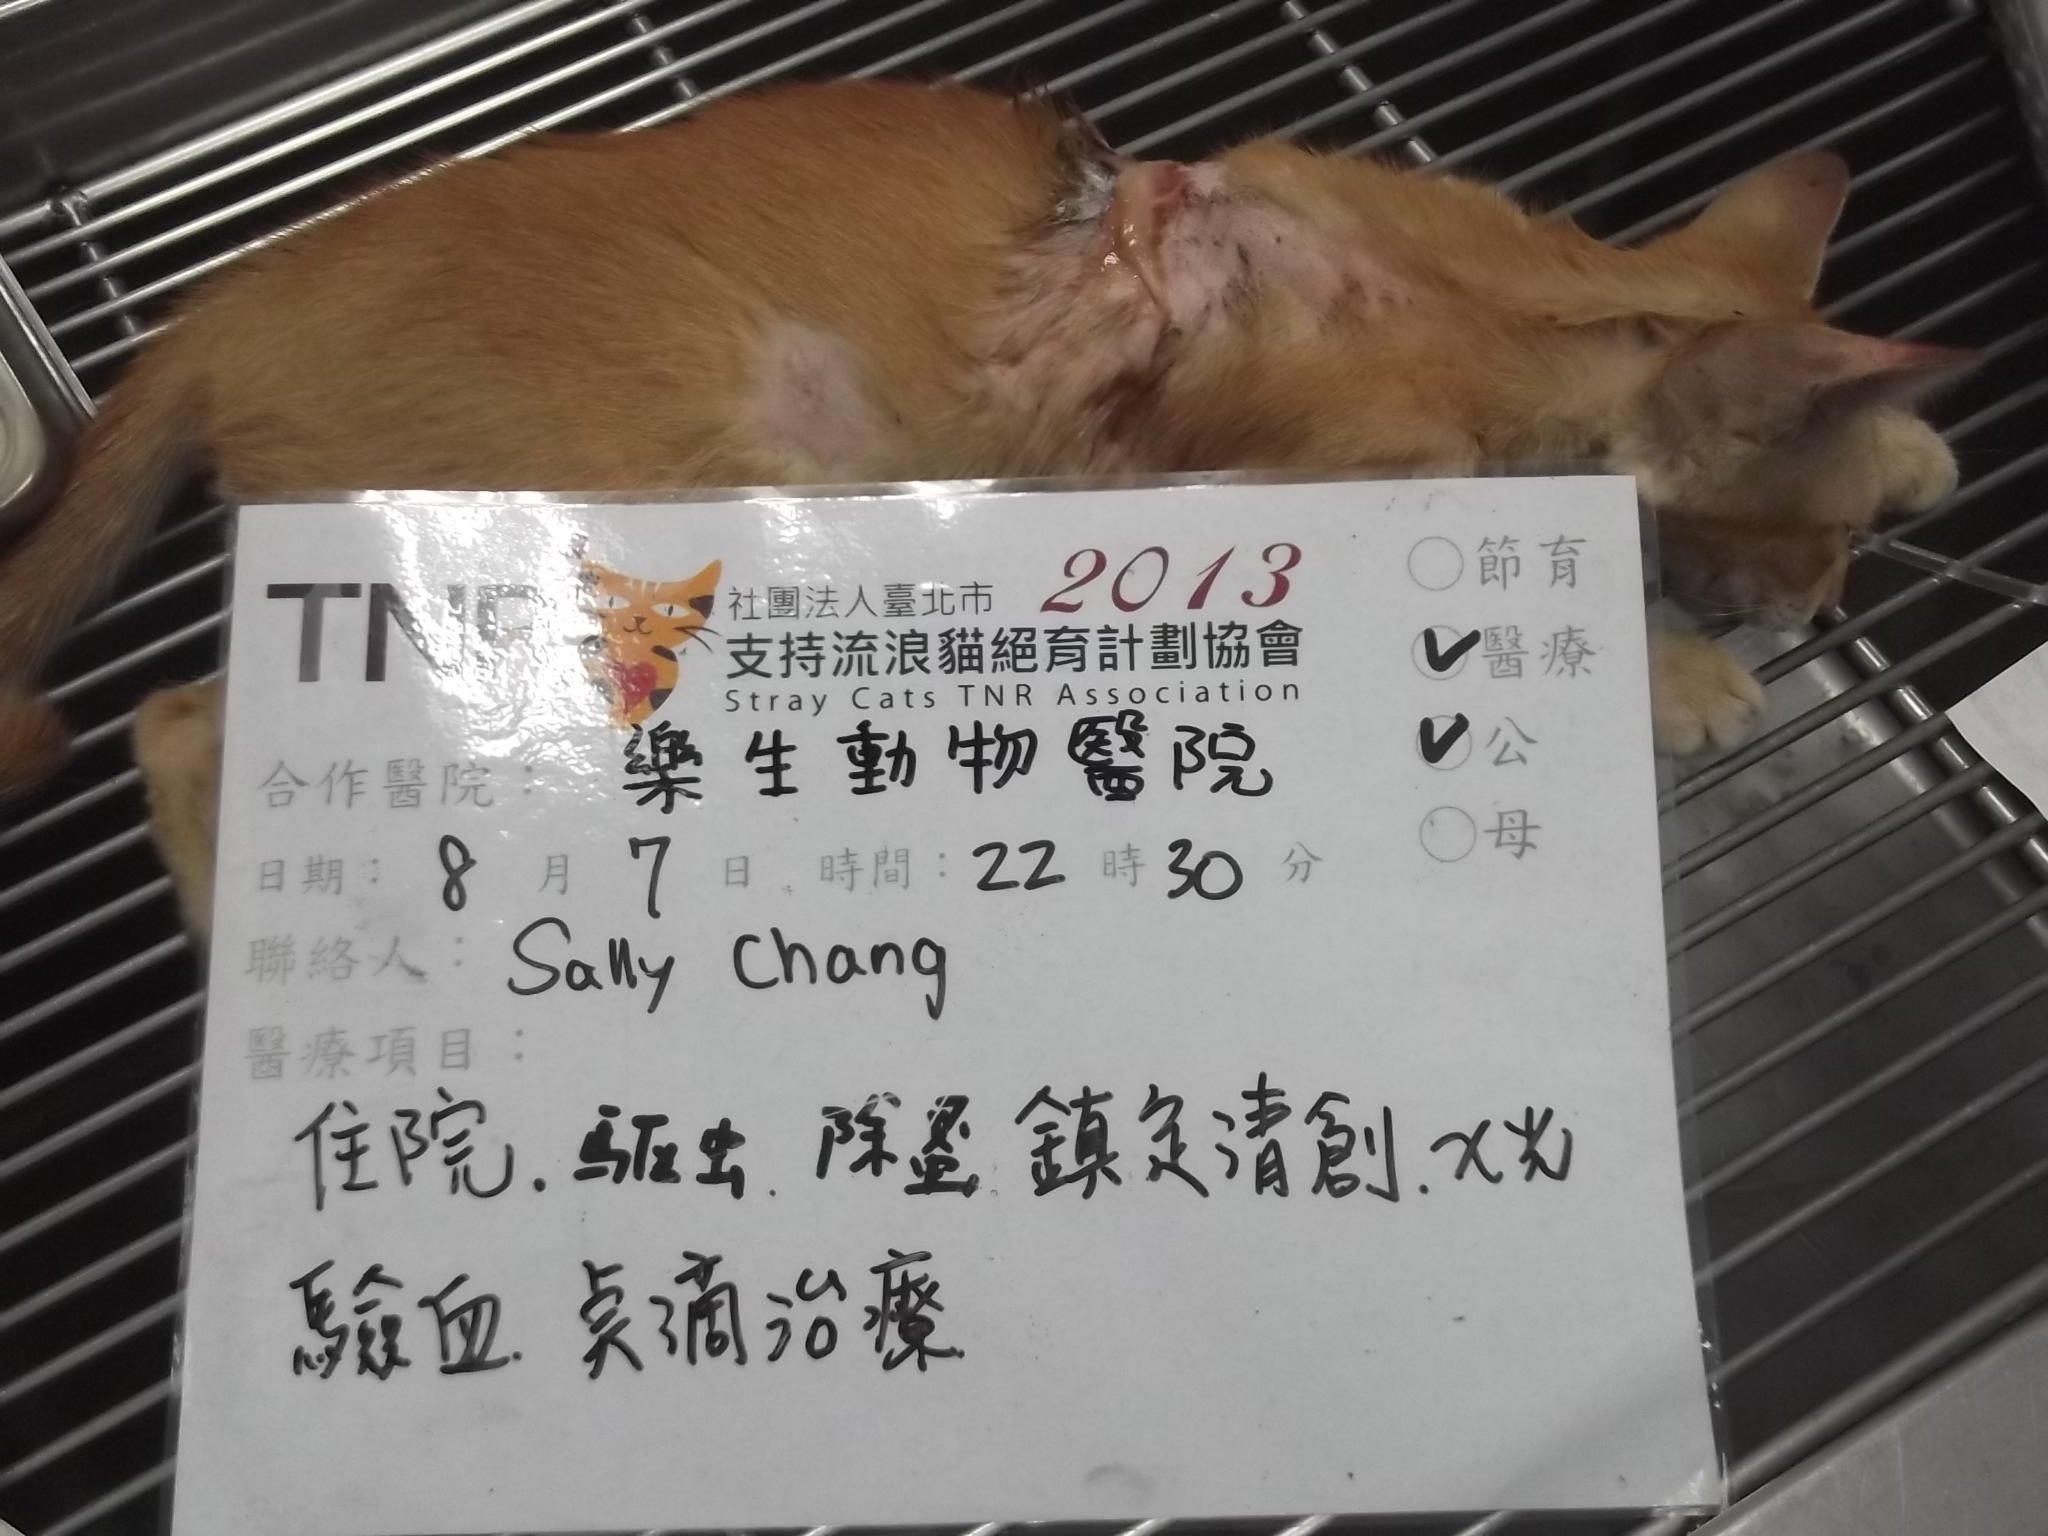 TNR
社團法人臺北市 2013
支持流浪貓絕育計劃協會
Stray Cats TNR Association
節育
醫療
公
母
合作醫院：樂生動物醫院
日期：8月7日 時間：22時30分
聯絡人：Sally Chang
醫療項目：
住院．驅虫．除蚤．鎮定清創．X光
驗血．点滴治療